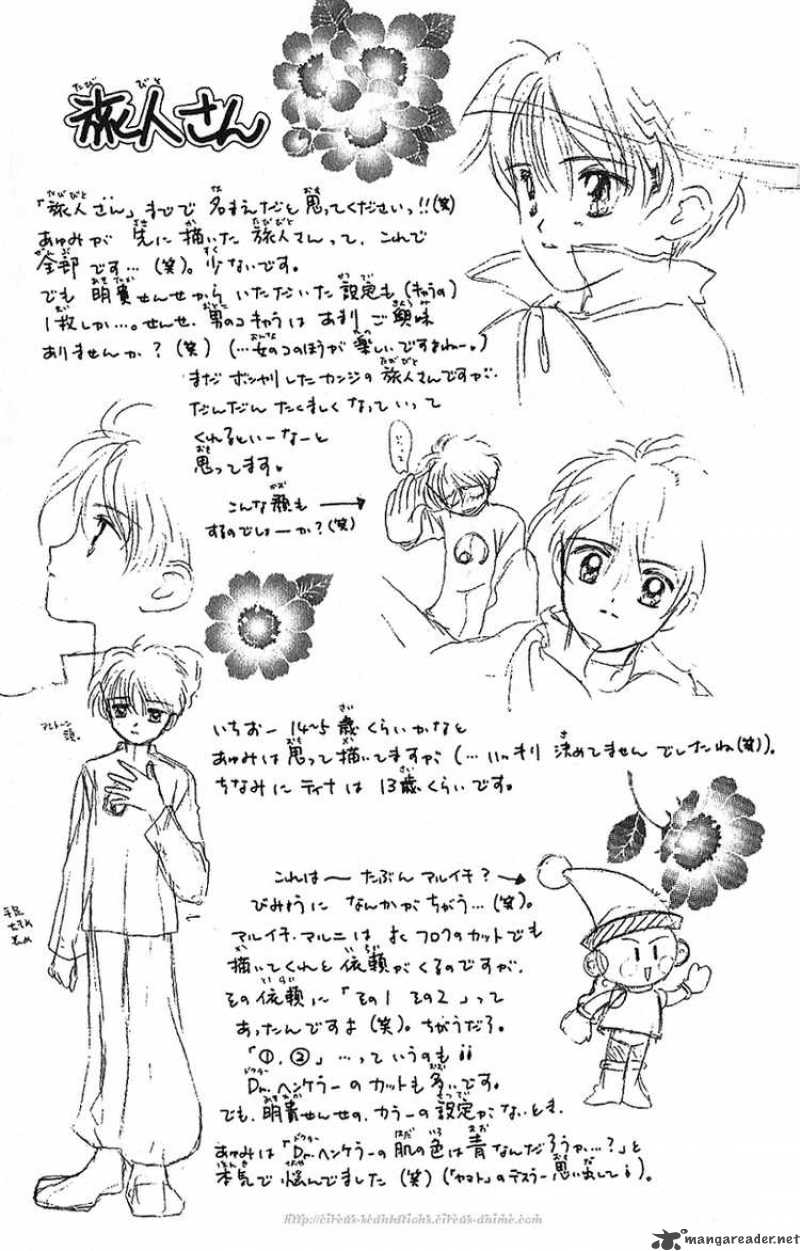 旅人さん
「旅人さん」まで で 名まえだと 思ってくださいっ!!(笑)
あゆみが 先に 描いた 旅人さんって、これで
全部 です…(笑)。少ないです。
でも 明貴せんせから いただいた 設定も(キャラの)
1枚しか…。せんせ、男のコキャラは あまり ご興味
ありませんか?(笑)(…女のコのほうが 楽しいですよねー。)
まだ ボンヤリしたカンジの 旅人さんですが、
だんだん たくましく なっていって
くれるといーなーと
思ってます。
こんな 顔も
するのでしょーか?(笑)
アントーン
頭。
いちおー 14〜5歳くらいかなと
あゆみは 思って描いてますが(…ハッキリ 決めてませんでしたね(笑))。
ちなみに ティナは 13歳くらいです。
手足
大きめ
長め
これは〜 たぶん マルイチ?
びみょうに なんかが ちがう…(笑)。
マルイチ・マルニは よく フロクのカットでも
描いてくれと 依頼が くるのですが、
その 依頼に「その1 その2」って
あったんですよ(笑)。ちがうだろ。
「①、②」…っていうのも!!
Dr.ヘンケラーのカットも 多いです。
でも、明貴せんせの、カラーの 設定が ないとき、
あゆみは「Dr.ヘンケラーの 肌の色は 青なんだろうか…?」と
本気で 悩んでました(笑)(「ヤマト」のデスラー思い出して!)。
http://eireas-redhhstichs.eireas-dhime.com
mangareader.net